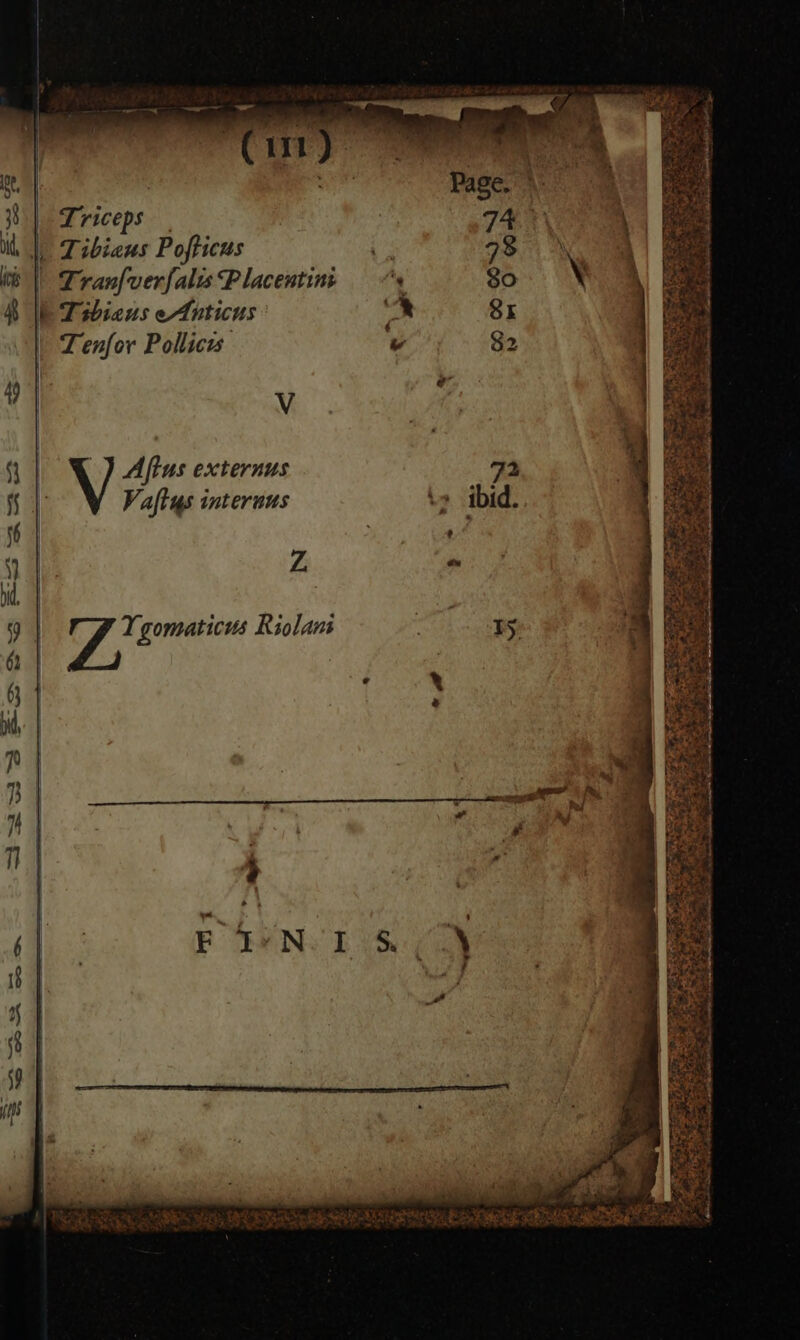 (iii)
Page.
Triceps 74
Tibiæus Poſticus 78
Tranſverſalis Placentini 80
Tibiæus Anticus 81
Tenſor Pollicis 82
V
VAſtus externus 72
Vaſtus internus ibid.
Z
ZYgomaticus Riolani 15
FINIS.